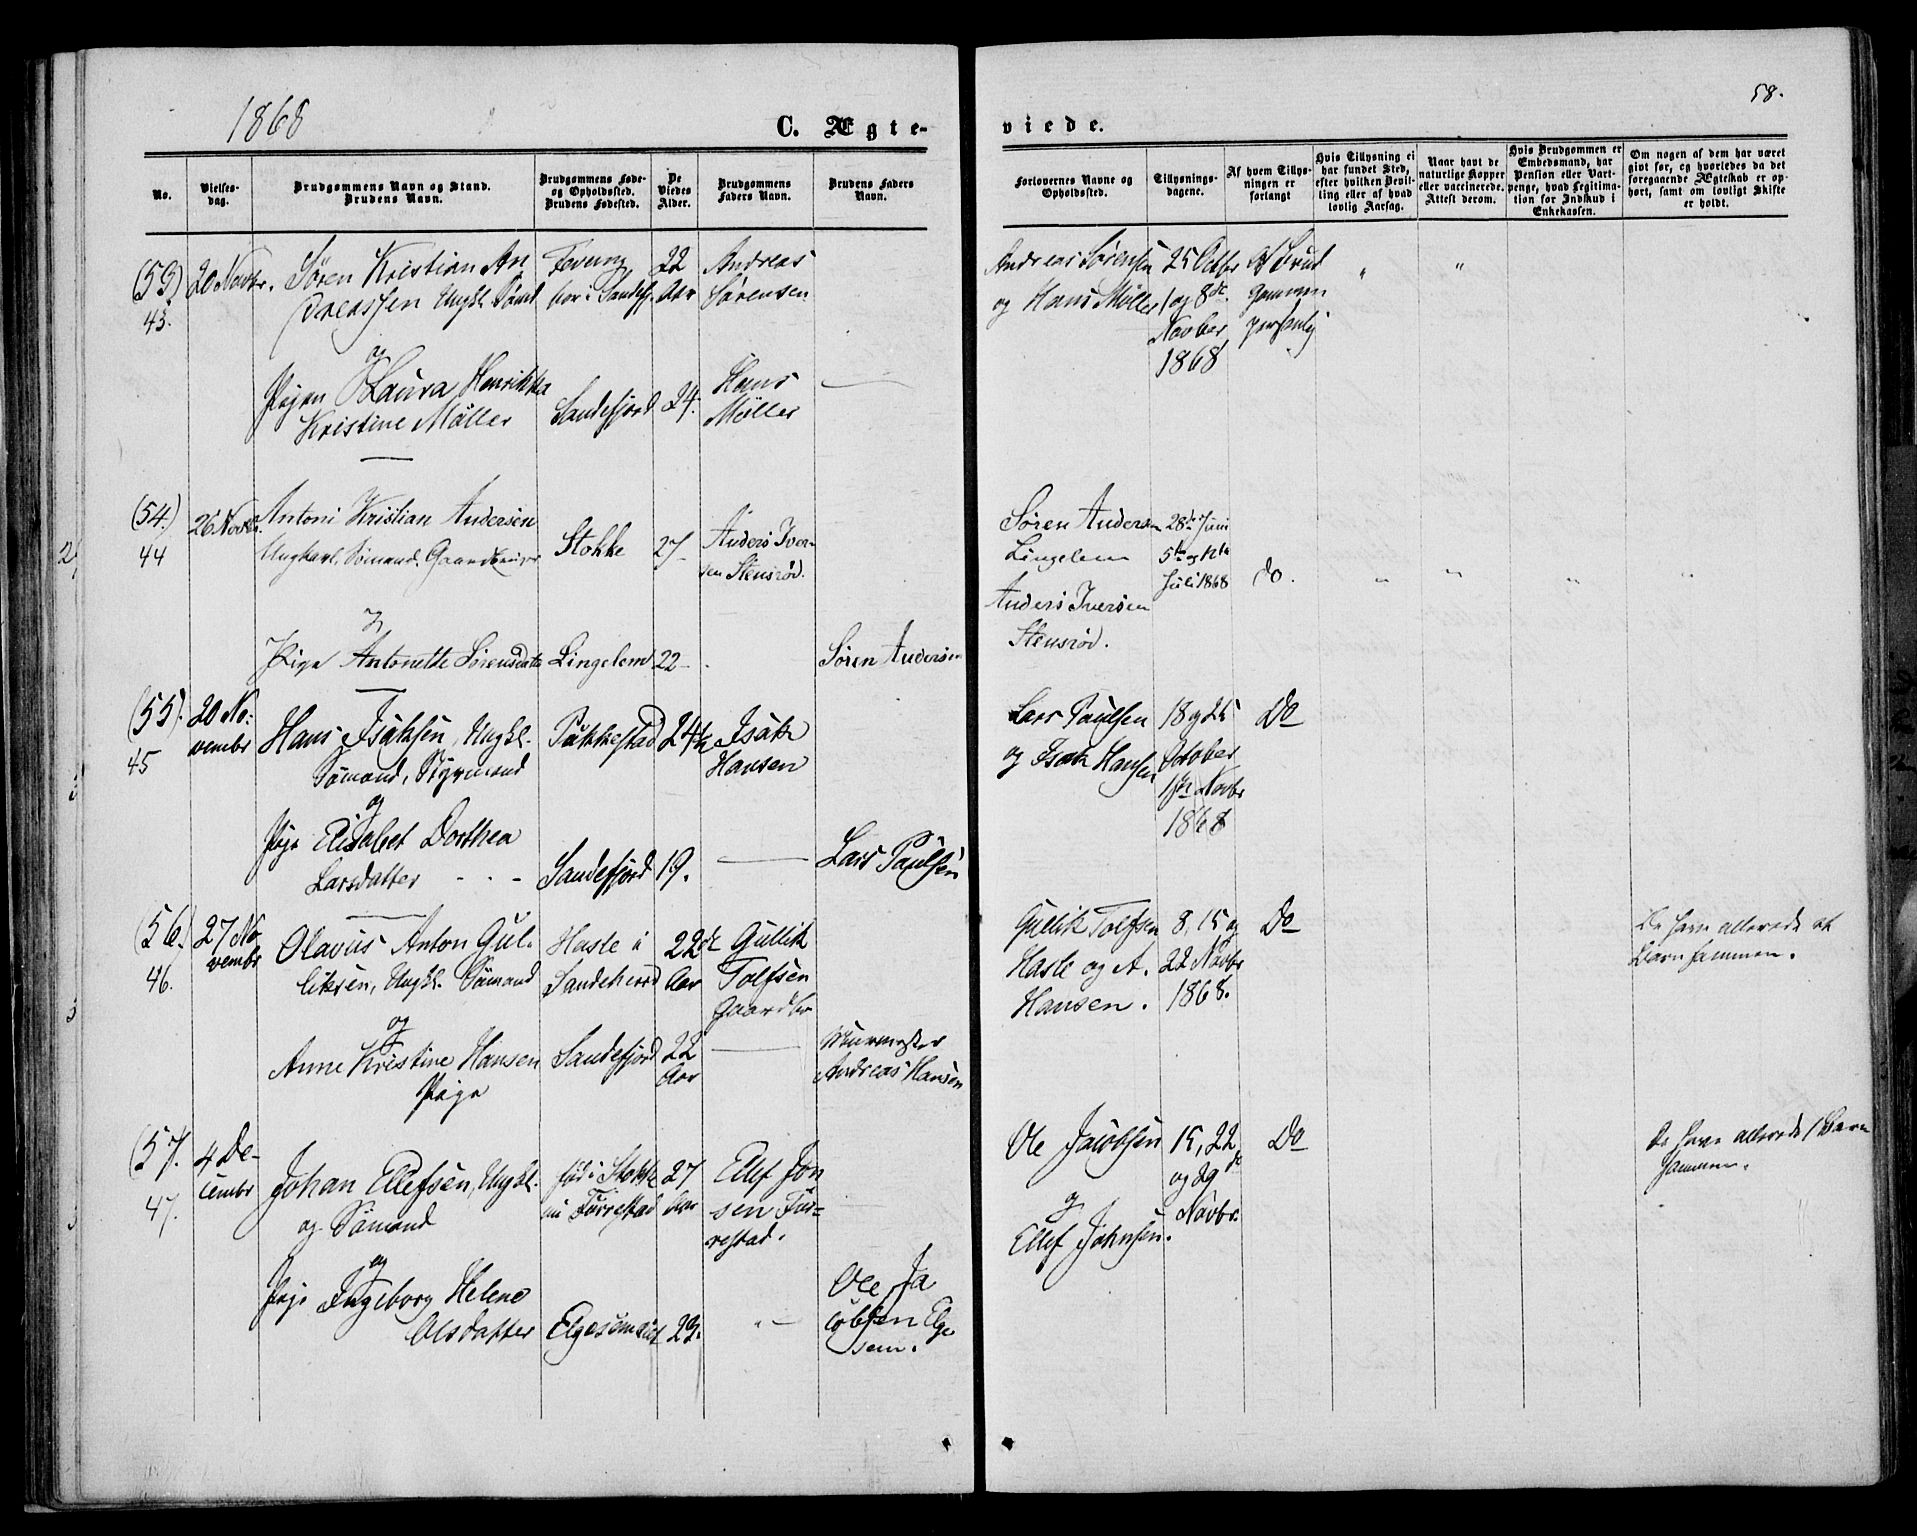 1868
C. Ægte-
viede.
58.
No.
Vielses-
dag.
Brudgommens Navn og Stand.
Brudens Navn.
Brudgommens Føde-
og Opholdssted.
Brudens Fødested.
De
Viedes
Alder.
Brudgommens
Faders Navn.
Brudens Faders
Navn.
Forlovernes Navne og
Opholdssted.
Tillysnings-
dagene.
Af hvem Tillys-
ningen er
forlangt
Hvis Tillysning ei
har fundet Sted,
efter hvilken Bevil-
ling eller af hvad
lovlig Aarsag.
Naar havt de
naturlige Kopper
eller vaccinerede.
Attest derom.
Hvis Brudgommen er
Embedsmand, har
Pension eller Vart-
penge, hvad Legitima-
tion for Indskud i
Enkekassen.
Om nogen af dem har været
gift før, og hvorledes da det
foregaaende Ægteskab er op-
hørt, samt om lovligt Skifte
er holdt.
(53)
43.
20 Novbr.
Søren Kristian An
dreassen Ungkl. Sömd
og
Pigen Laura Henrikka
Kristine Møller
bor i Sandefj.
Sandefjord
22
Aar
24.
Andreas
Sørensen
Hans
Møller
Andreas Sørensen
og Hans Møller
25 Octbr
1 og 8de
Novber
1868
Af Brud
gommen
personlig
(54.)
44
26 Novbr.
Antoni Kristian Andersen
Ungkarl, Sømand, Gaardbruger
Pige Antonette Sørensdatr
Stokke
Lingelem
27
22
Anders Iver-
sen Stensrød.
Søren Andersen
Søren Andersen
Lingelem
Anders Iversen
Stensrød.
28de Juni
5te og 12te
Juli 1868
do.
(55).
45
20 No-
vembr
Hans Isaksen, Ungkl.
Sömand, Styrmand
og
Pige Elisabet Dorthea
Larsdatter
Pukkestad
Sandefjord
24½
19.
Isak
Hansen
Lars Paulsen
Lars Paulsen
og Isak Hansen
18 og 25
October
1ste Novbr
1868
Do
(56.)
46.
27 No
vembr
Olavus Anton Gul-
liksen, Ungkl. Sømand
og
Anne Kristine Hansen
Pige
Hasle i
Sandeherred
Sandefjord
22de
Aar
22
Aar
Gullik
Tolfsen
Gaardbr
Murmester
Andreas Hansen
Gullik Tolfsen
Hasle og A.
Hansen.
8, 15 og
22 Novbr
1868.
Do
De have allerede et
Barn sammen.
(57.
47.
4 De-
cembr
Johan Ellefsen, Ungkl.
og Sömand
og
Pige Ingeborg Helene
Olsdatter
født i Stokke
nu Furrestad
27
Aar
23.
Ellef Jon
sen Fur-
restad.
Ole Ja
cobsen Elge
sem.
Ole Jacobsen
og
Ellef Johnsen.
15, 22
og 29de
Novbr.
Do
De have allerede 1 Barn
sammen.